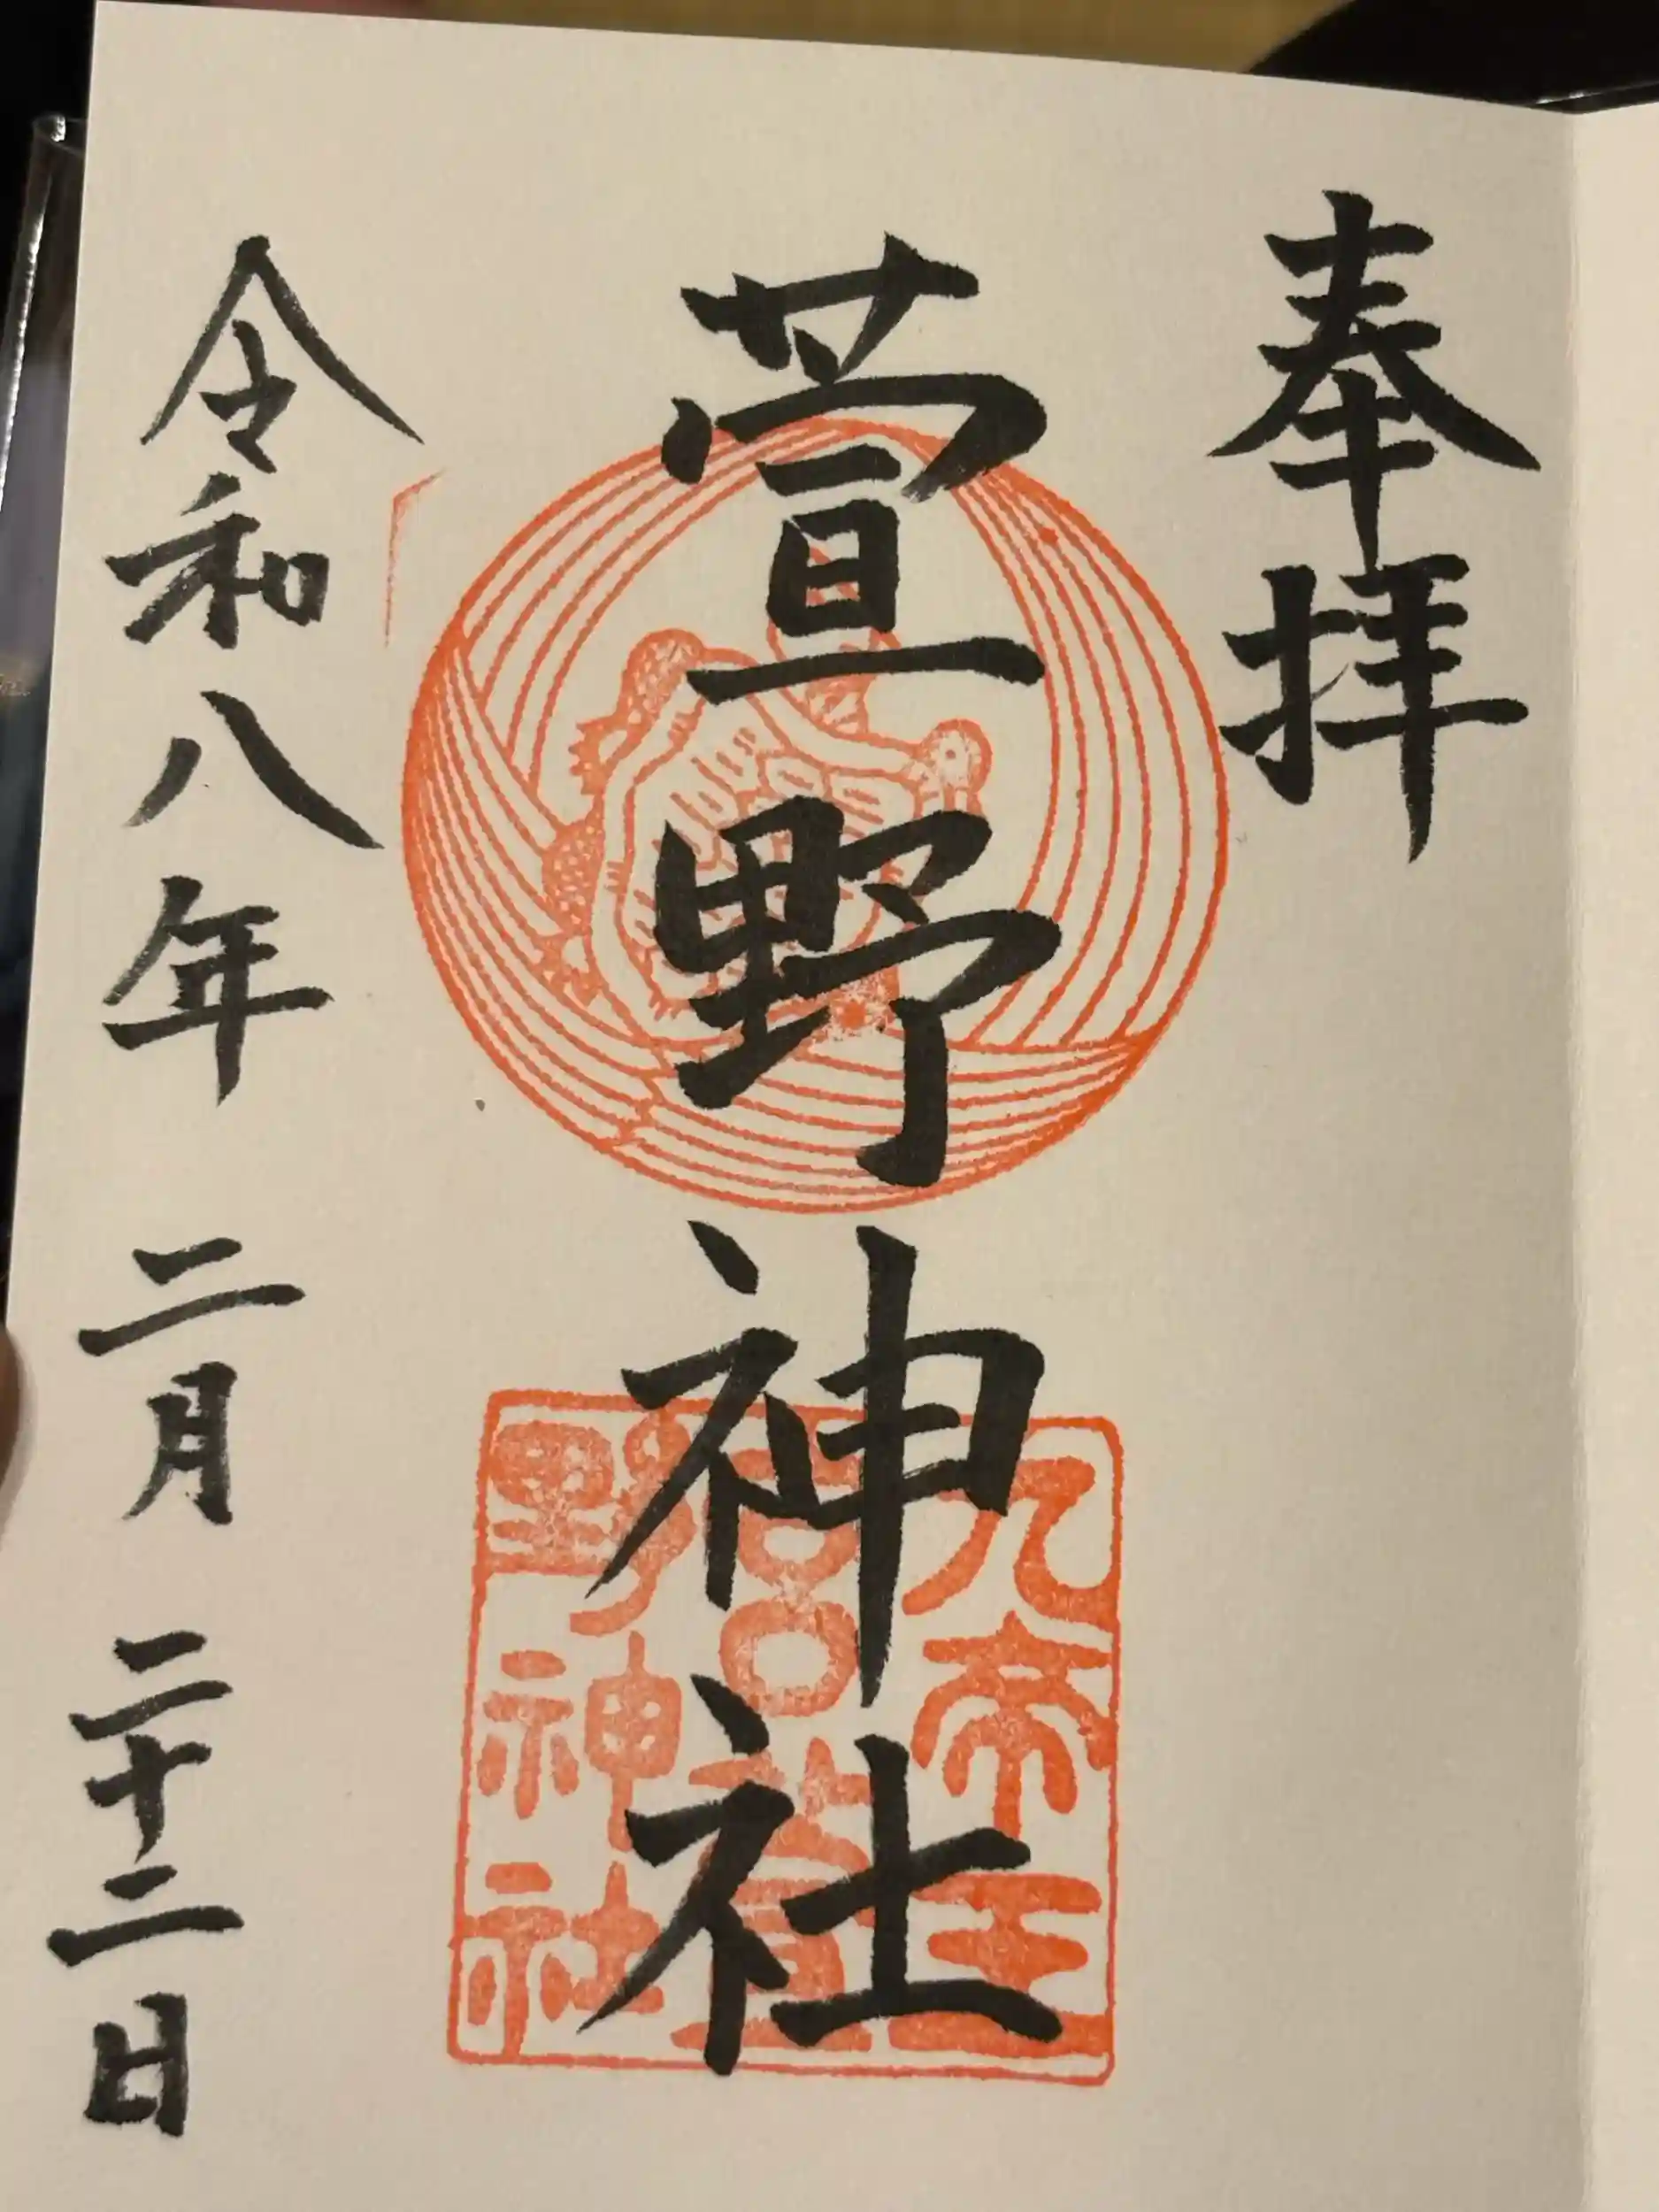 奉拝
萱野神社
令和八年 二月 二十二日
野神社